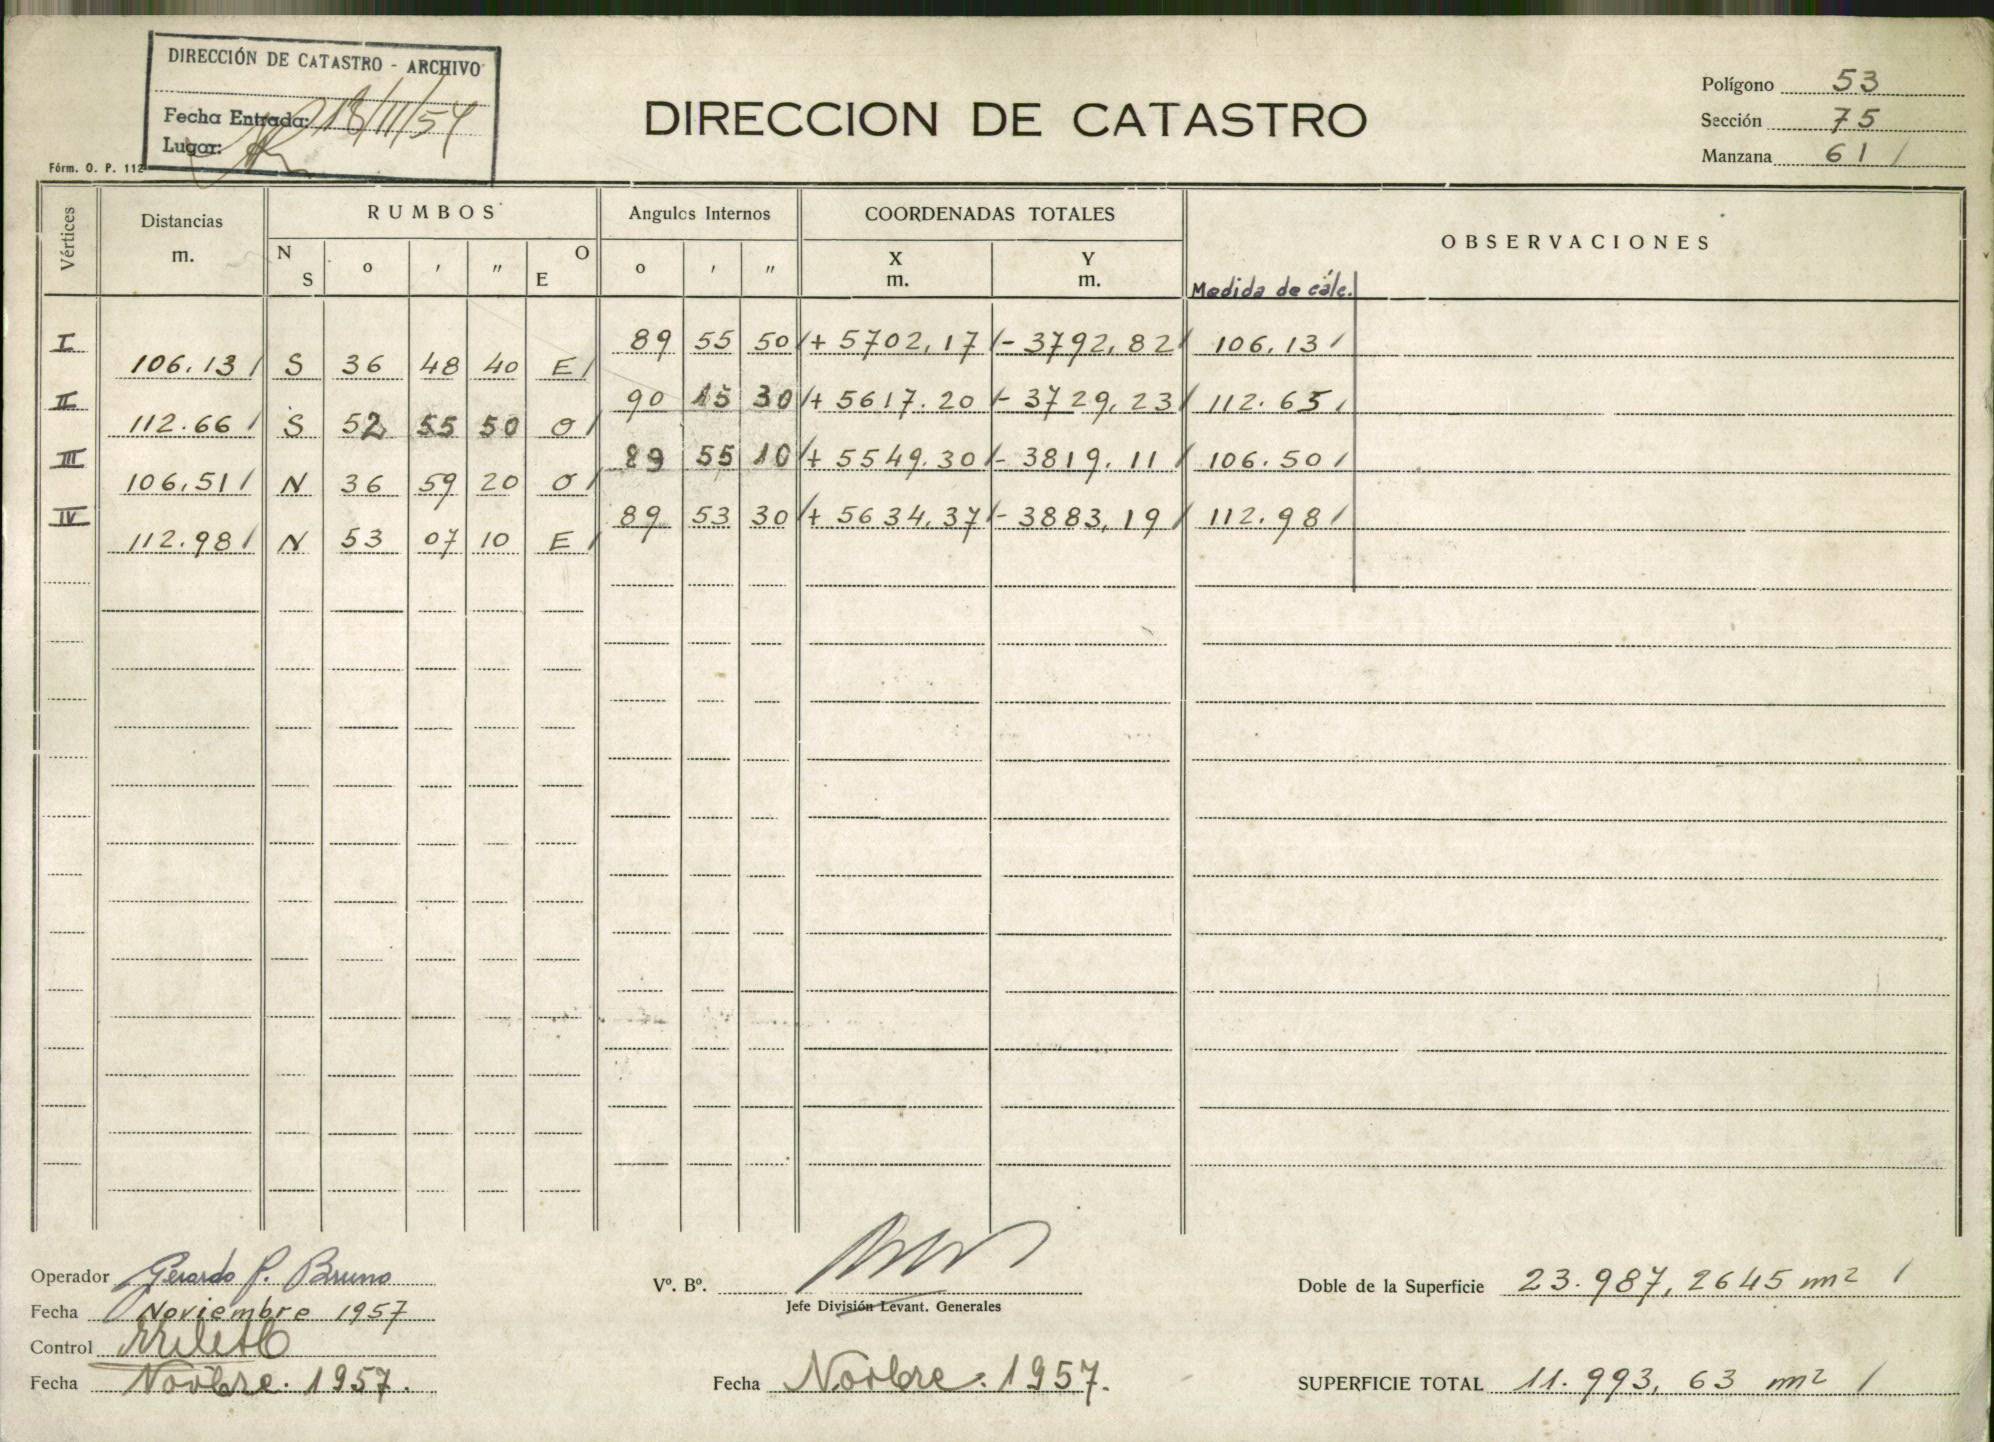 DIRECCIÓN DE CATASTRO - ARCHIVO
Fecha Entrada:
Lugar:
Fórm. O. P. 112
DIRECCION DE CATASTRO
Polígono 53
Sección 75
Manzana 61 /
Vértices Distancias m. RUMBOS Angulos Internos COORDENADAS TOTALES OBSERVACIONES
N S o ' " O E o ' " X m. Y m. Medida de cálc.
I 89 55 50 / + 5702,17 / - 3792,82 / 106,13 /
106.13 / S 36 48 40 E /
II 90 15 30 / + 5617.20 / - 3729,23 / 112.65 /
112.66 / S 52 55 50 O /
III 89 55 10 / + 5549.30 / - 3819.11 / 106.50 /
106,51 / N 36 59 20 O /
IV 89 53 30 / + 5634,37 / - 3883,19 / 112.98 /
112.98 / N 53 07 10 E /
Operador Gerardo P. Bruno
Fecha Noviembre 1957
Control
Fecha Novbre. 1957.
Vº. Bº.
Jefe División Levant. Generales
Fecha Novbre. 1957.
Doble de la Superficie 23.987,2645 m2 /
SUPERFICIE TOTAL 11.993,63 m2 /